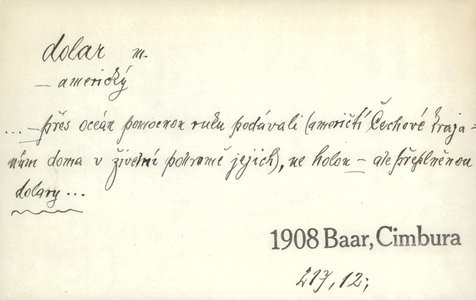 dolar m.
— americký
... — přes oceán pomocnou ruku podávali (američtí Čechové kraja-
nům doma v živelní pohromě jejich), ne holou — ale přeplněnou
dolary ...
1908 Baar, Cimbura
217, 12;